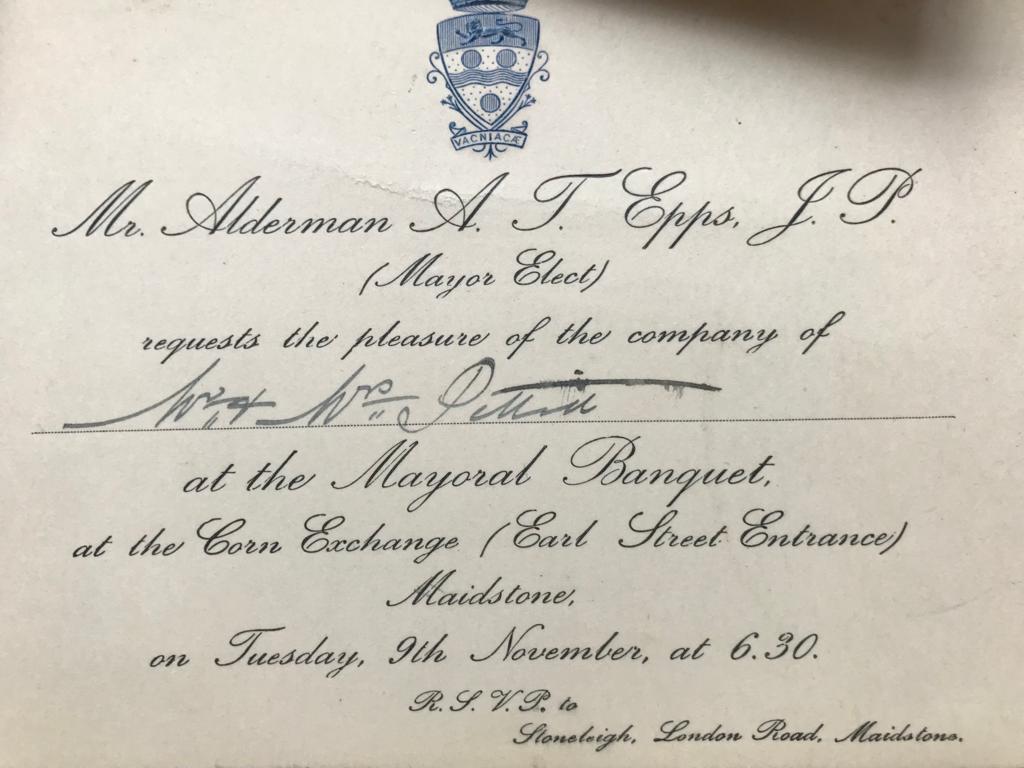 VACNIACÆ
Mr. Alderman A. T. Epps, J. P.
(Mayor Elect)
requests the pleasure of the company of
Mr & Mrs
at the Mayoral Banquet,
at the Corn Exchange (Earl Street Entrance)
Maidstone,
on Tuesday, 9th November, at 6.30.
R. S. V. P. to
Stoneleigh, London Road, Maidstone.